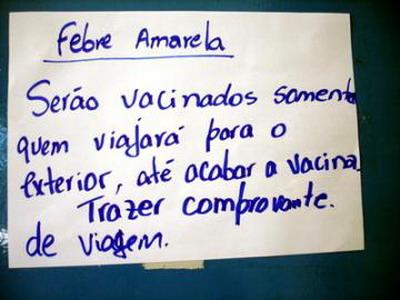 Febre Amarela
Serão vacinados somente
quem viajará para o
exterior, até acabar a vacina.
Trazer comprovante.
de viagem.